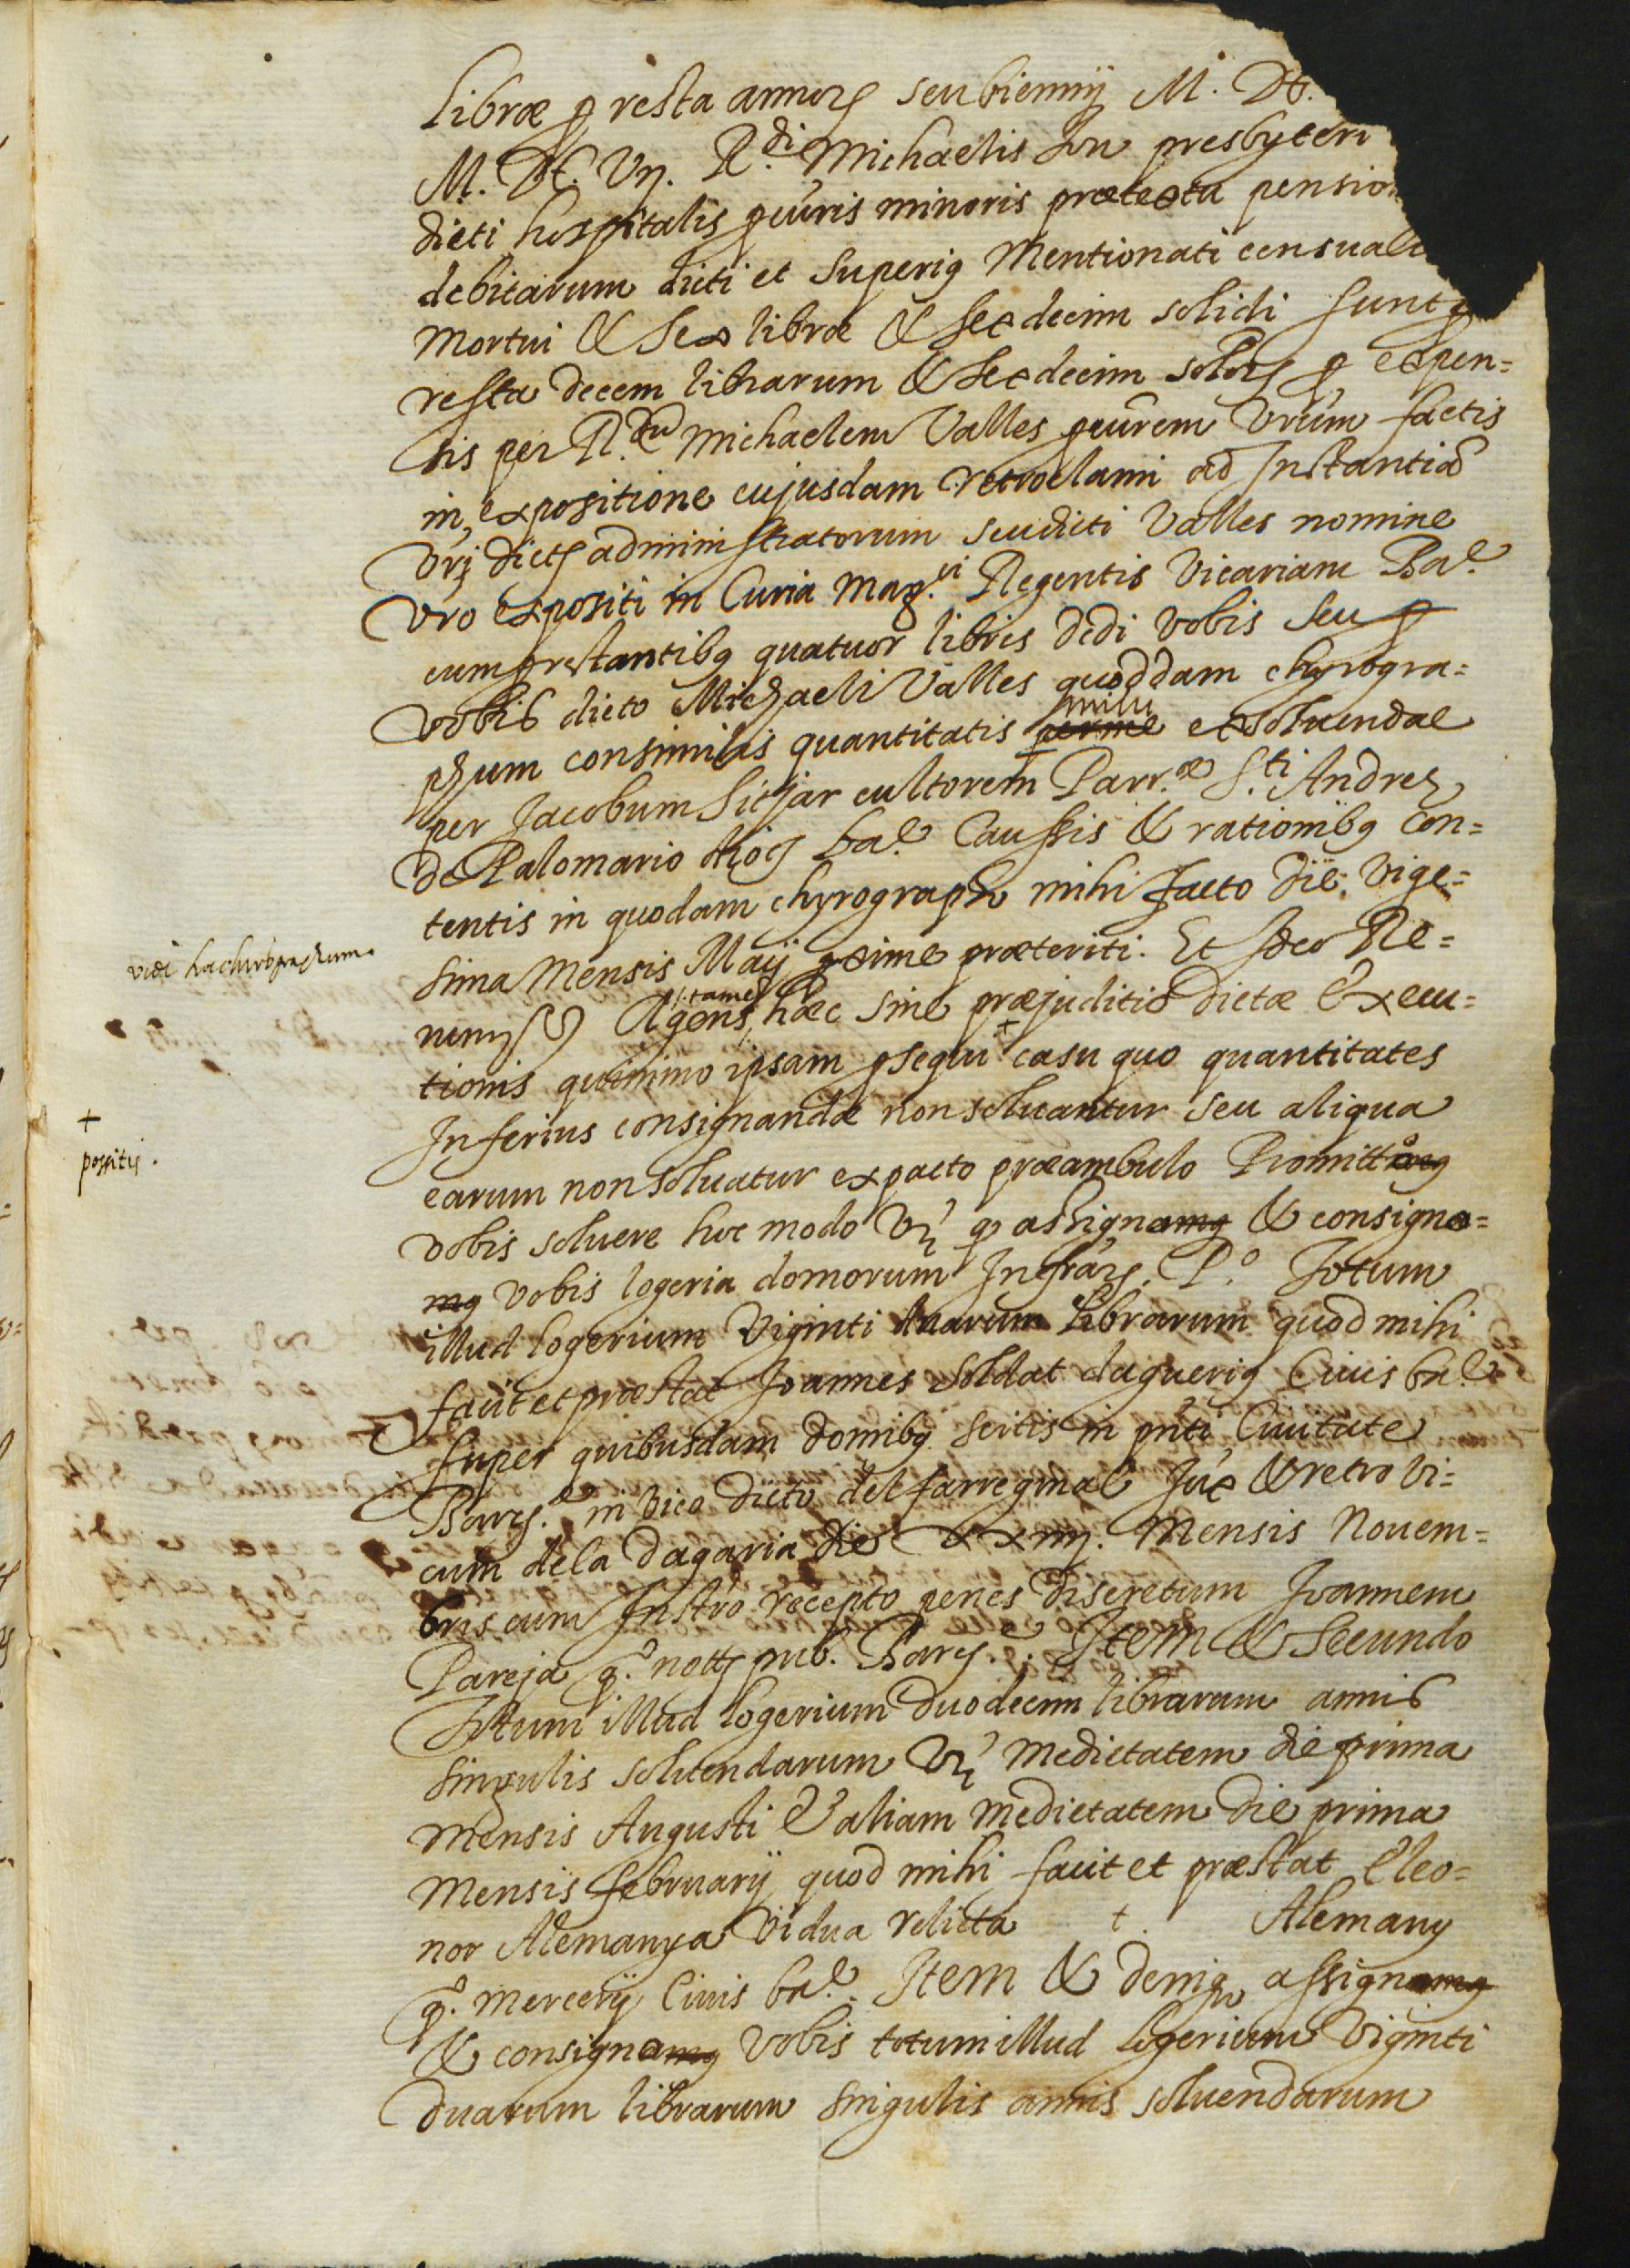 libræ p resta annorȝ seu biennij M. DC.
M. DC. Vij. R.di Michaelis Jon presbyteri
dicti hospitalis pcuris minoris prætexta pension
debitarum dicti et Superiꝰ Mentionati censual
Mortui & Sex libræ & Sexdecim solidi sunt p
resta decem librarum & Sexdecim solidorȝ p expen=
sis per R.dū Michaelem Valles pcurem Vrūm factis
in expositione cujusdam retroclami ad Instantiā
Vrī dictȝ administratorum seu dicti Valles nomine
Vro expositi in Curia Mag.ci Regentis Vicariam Ba.e
cum prestantibꝰ quatuor libris dedi vobis seu p
vobis dicto Michaeli Valles quoddam chyrogra=
phum consimilis quantitatis perme mihi exsoluendae
per Jacobum Sitjar cultorem Parr.æ S.ti Andreȝ
de Palomario dioȝ ba.e Caussis & rationibꝰ con=
tentis in quodam chyrographo mihi facto die vige=
vidi ha chirographum.
sima Mensis Maij pxime præteriti. Et Ideo Re=
nunȝ &) Agens tamen hæc sine præjuditio dictæ Execu=
tionis quinimo ipsam psequi + casu quo quantitates
Inferius consignandæ non soluantur seu aliqua
+
possitis.
earum non soluatur ex pacto præambulo Promitto
vobis soluere hoc modo Vȝ q assignamꝰ & consigna=
mꝰ vobis logeria domorum Infrarȝ. P.o Totum
illud logerium Viginti duarum librarum quod mihi
facit et præstat Joannes Soldat dagueriꝰ Ciuis ba.e
super quibusdam domibꝰ scitis in pnti Ciuitate
Barȝ.e in vico dicto del farreginal siue & retro vi=
cum de la dagaria die xxiiij. Mensis Nouem=
bris cum Instro recepto penes discretum Joannem
Pareja q.o nottȝ pub. Barȝ.e. Item & Secundo
Totum illud logerium duodecim librarum annis
singulis soluendarum Vȝ medietatem die prima
mensis Augusti & aliam medietatem die prima
Mensis februarij quod mihi facit et præstat Eleo=
nor Alemanya vidua relicta + . Alemany
q.o mercerij Ciuis ba.e. Item & deniqꝫ assignamꝰ
& consignamꝰ vobis totum illud logerium viginti
duarum librarum singulis annis soluendarum